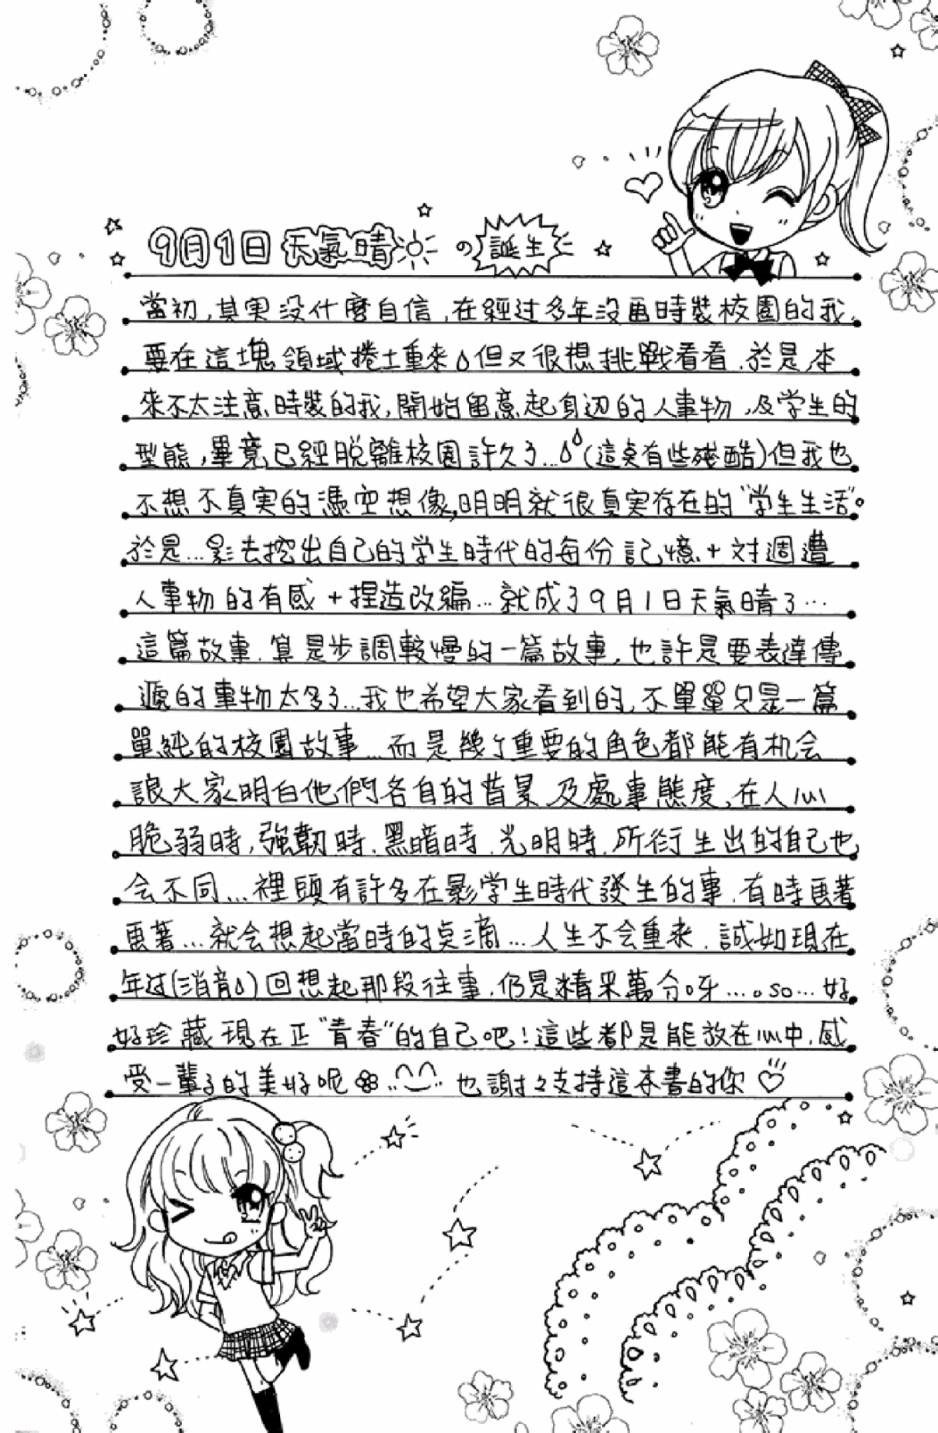 9月1日 天氣晴 の 誕生
當初,其実没什麼自信,在經过多年沒畫時裝校園的我,
要在這塊領域捲土重來 但又很想挑戰看看.於是,本
來不太注意時裝的我,開始留意起身辺的人事物,及学生的
型態,畢竟已經脫離校園許久了...(這点有些殘酷)但我也
不想不真実的憑空想像,明明就很真実存在的"学生生活"。
於是...影去挖出自己的学生時代的每份記憶+对週遭
人事物的有感+捏造改編...就成了9月1日天氣晴了...
這篇故事.算是步調較慢的一篇故事,也許是要表達傳
遞的事物太多了...我也希望大家看到的,不單單只是一篇
單純的校園故事...而是幾个重要的角色都能有机会
讓大家明白他們各自的背景及處事態度,在人心
脆弱時,強韌時.黑暗時.光明時.所衍生出的自己也
会不同...裡頭有許多在影学生時代發生的事.有時畫著
畫著...就会想起當時的点滴...人生不会重來.誠如現在
年过(消音)回想起那段往事.仍是精采萬分呀....so...好
好珍藏現在正"青春"的自己吧!這些都是能放在心中.感
受一輩子的美好呢 也謝謝支持這本書的你♡